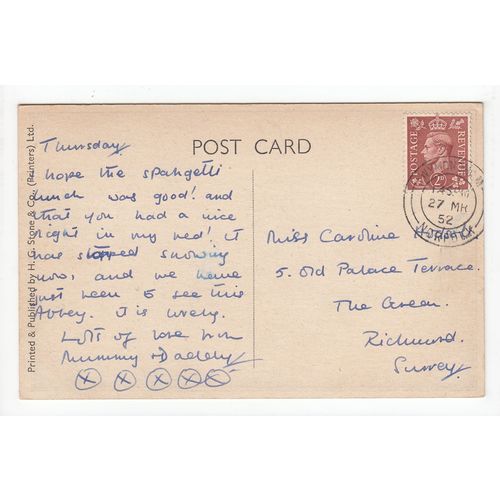 POST CARD
Printed & Published by H. G. Stone & Co., (Printers) Ltd.
Thursday
hope the spahgetti
lunch was good! and
that you had a nice
night in my bed! it
has stopped snowing
now, and we have
just been to see this
Abbey. It is lovely.
Lots of love from
Mummy + Daddy
X X X X X
POSTAGE
REVENUE
2D
27 MR
52
NORFOLK
Miss Caroline
5. Old Palace Terrace.
The Green.
Richmond.
Surrey